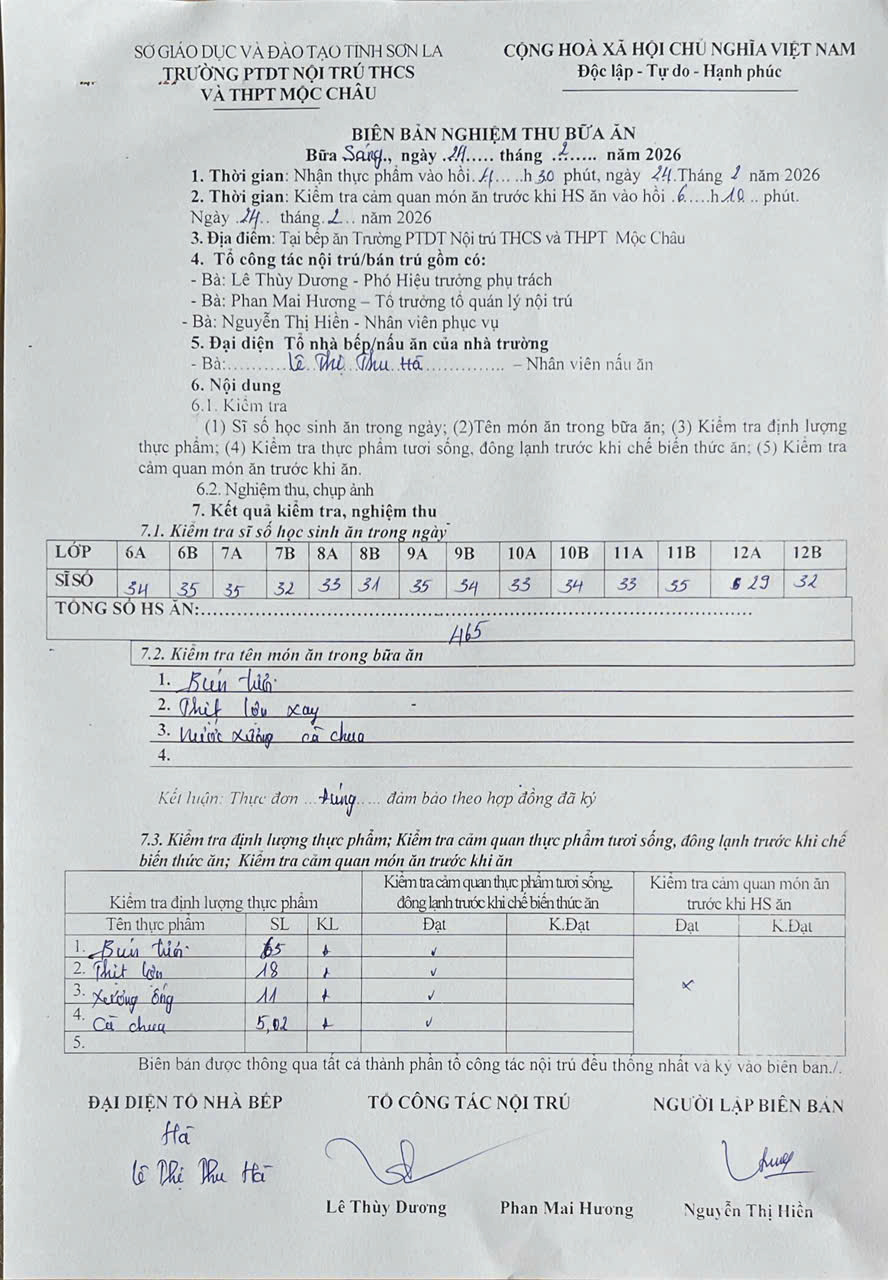 SỞ GIÁO DỤC VÀ ĐÀO TẠO TỈNH SƠN LA
TRƯỜNG PTDT NỘI TRÚ THCS
VÀ THPT MỘC CHÂU
CỘNG HOÀ XÃ HỘI CHỦ NGHĨA VIỆT NAM
Độc lập - Tự do - Hạnh phúc
BIÊN BẢN NGHIỆM THU BỮA ĂN
Bữa Sáng., ngày .24..... tháng ..2..... năm 2026
1. Thời gian: Nhận thực phẩm vào hồi.4.....h 30 phút, ngày 24.Tháng 2 năm 2026
2. Thời gian: Kiểm tra cảm quan món ăn trước khi HS ăn vào hồi .6....h10 .. phút.
Ngày .24.. tháng.2... năm 2026
3. Địa điểm: Tại bếp ăn Trường PTDT Nội trú THCS và THPT Mộc Châu
4. Tổ công tác nội trú/bán trú gồm có:
- Bà: Lê Thùy Dương - Phó Hiệu trưởng phụ trách
- Bà: Phan Mai Hương – Tổ trưởng tổ quản lý nội trú
- Bà: Nguyễn Thị Hiền - Nhân viên phục vụ
5. Đại diện Tổ nhà bếp/nấu ăn của nhà trường
- Bà:..........Lê Thị Thu Hà................ – Nhân viên nấu ăn
6. Nội dung
6.1. Kiểm tra
(1) Sĩ số học sinh ăn trong ngày; (2)Tên món ăn trong bữa ăn; (3) Kiểm tra định lượng
thực phẩm; (4) Kiểm tra thực phẩm tươi sống, đông lạnh trước khi chế biến thức ăn; (5) Kiểm tra
cảm quan món ăn trước khi ăn.
6.2. Nghiệm thu, chụp ảnh
7. Kết quả kiểm tra, nghiệm thu
7.1. Kiểm tra sĩ số học sinh ăn trong ngày
LỚP 6A 6B 7A 7B 8A 8B 9A 9B 10A 10B 11A 11B 12A 12B
SĨ SỐ 34 35 35 32 33 31 35 34 33 34 33 35 29 32
TỔNG SỐ HS ĂN:........................................
465
7.2. Kiểm tra tên món ăn trong bữa ăn
1. Bún tươi
2. Thịt lợn xay
3. Nước xương cà chua
4.
Kết luận: Thực đơn ...đúng..... đảm bảo theo hợp đồng đã ký
7.3. Kiểm tra định lượng thực phẩm; Kiểm tra cảm quan thực phẩm tươi sống, đông lạnh trước khi chế
biến thức ăn; Kiểm tra cảm quan món ăn trước khi ăn
Kiểm tra định lượng thực phẩm
Kiểm tra cảm quan thực phẩm tươi sống,
đông lạnh trước khi chế biến thức ăn
Kiểm tra cảm quan món ăn
trước khi HS ăn
Tên thực phẩm SL KL Đạt K.Đạt Đạt K.Đạt
1. Bún tươi 65 + ✓
2. Thịt lợn 18 + ✓
3. Xương ống 11 + ✓ x
4. Cà chua 5,02 + ✓
5.
Biên bản được thông qua tất cả thành phần tổ công tác nội trú đều thống nhất và ký vào biên bản./.
ĐẠI DIỆN TỔ NHÀ BẾP TỔ CÔNG TÁC NỘI TRÚ NGƯỜI LẬP BIÊN BẢN
Hà
Lê Thị Thu Hà
Lê Thùy Dương Phan Mai Hương Nguyễn Thị Hiền